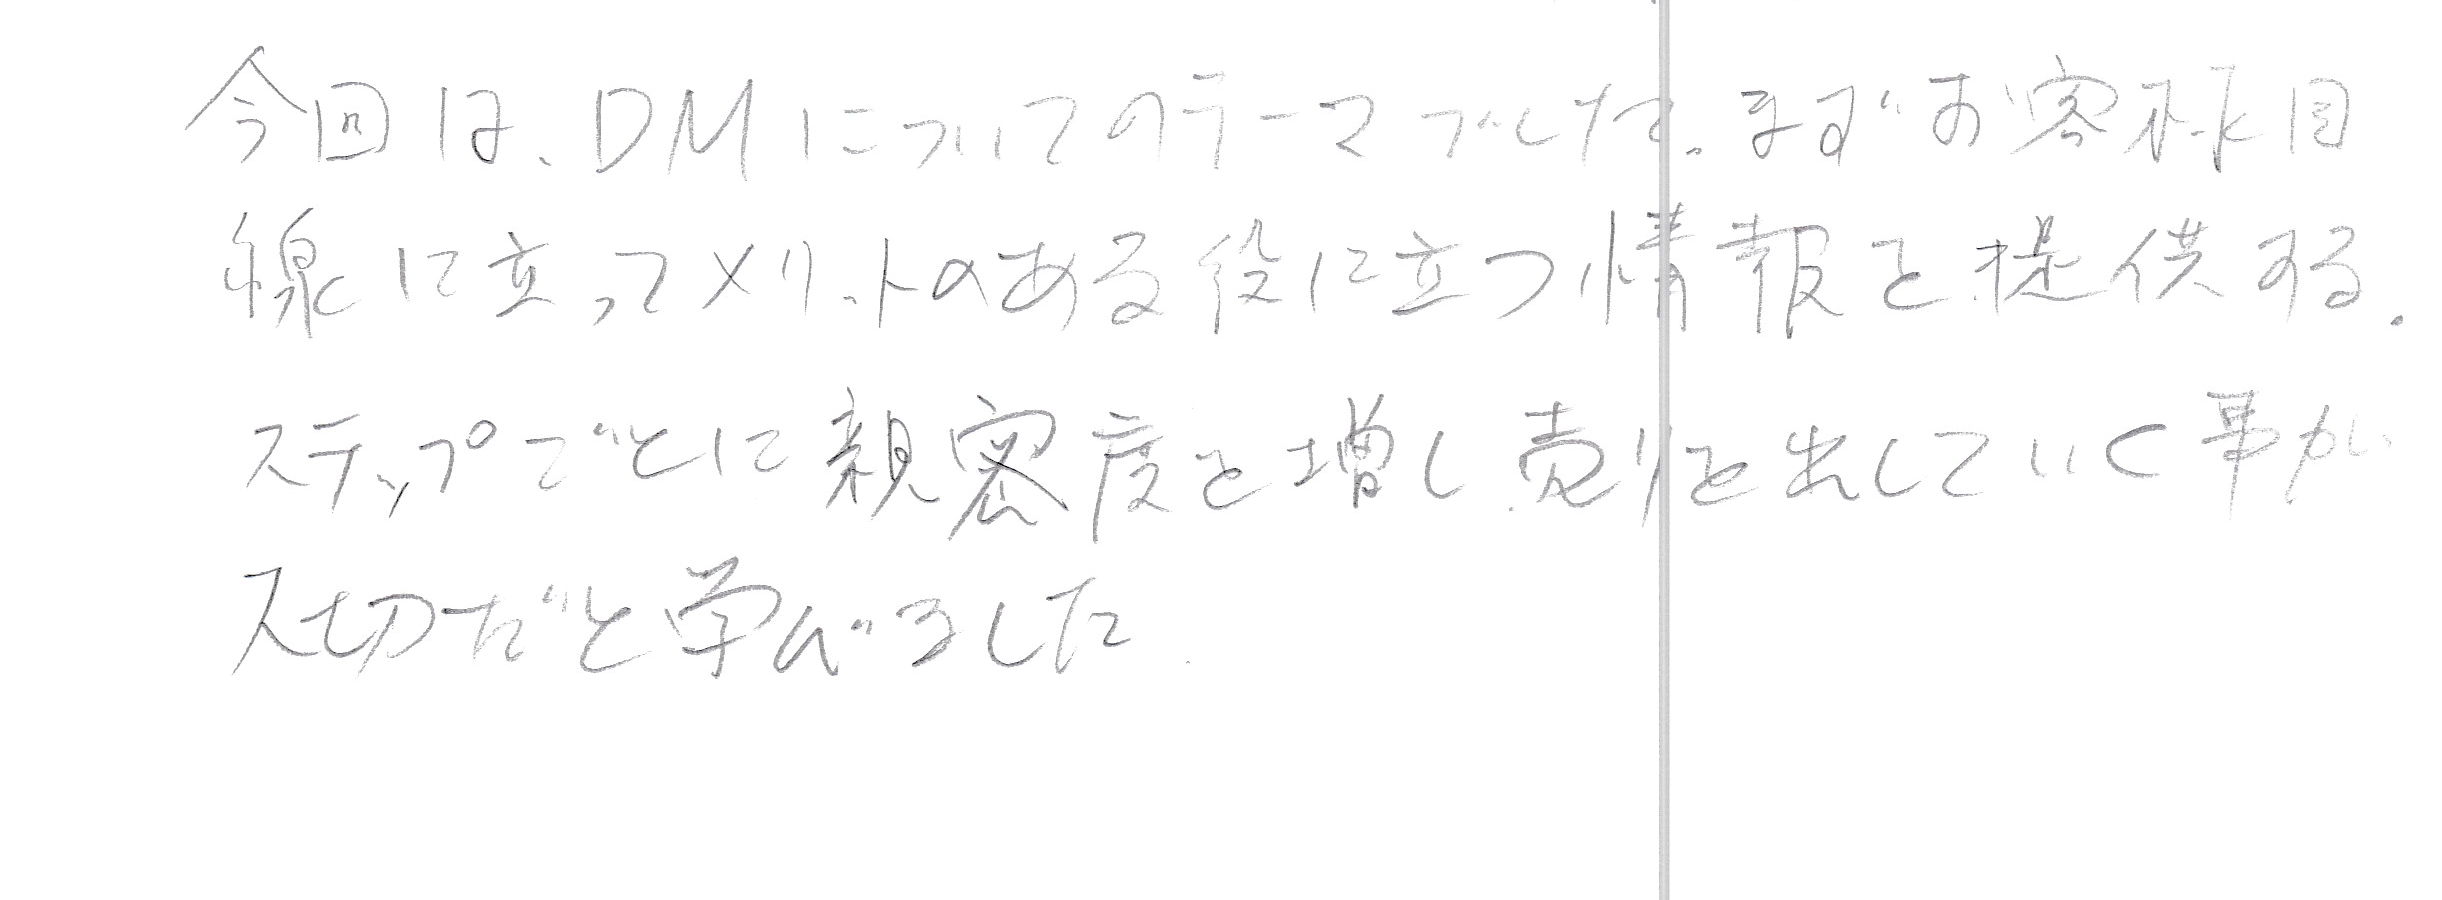 今回は、DMについてのテーマでした。まずお客様目
線に立ってメリットのある役に立つ情報を提供する。
ステップごとに親密度を増し、売りを出していく事が
大切だと学びました。